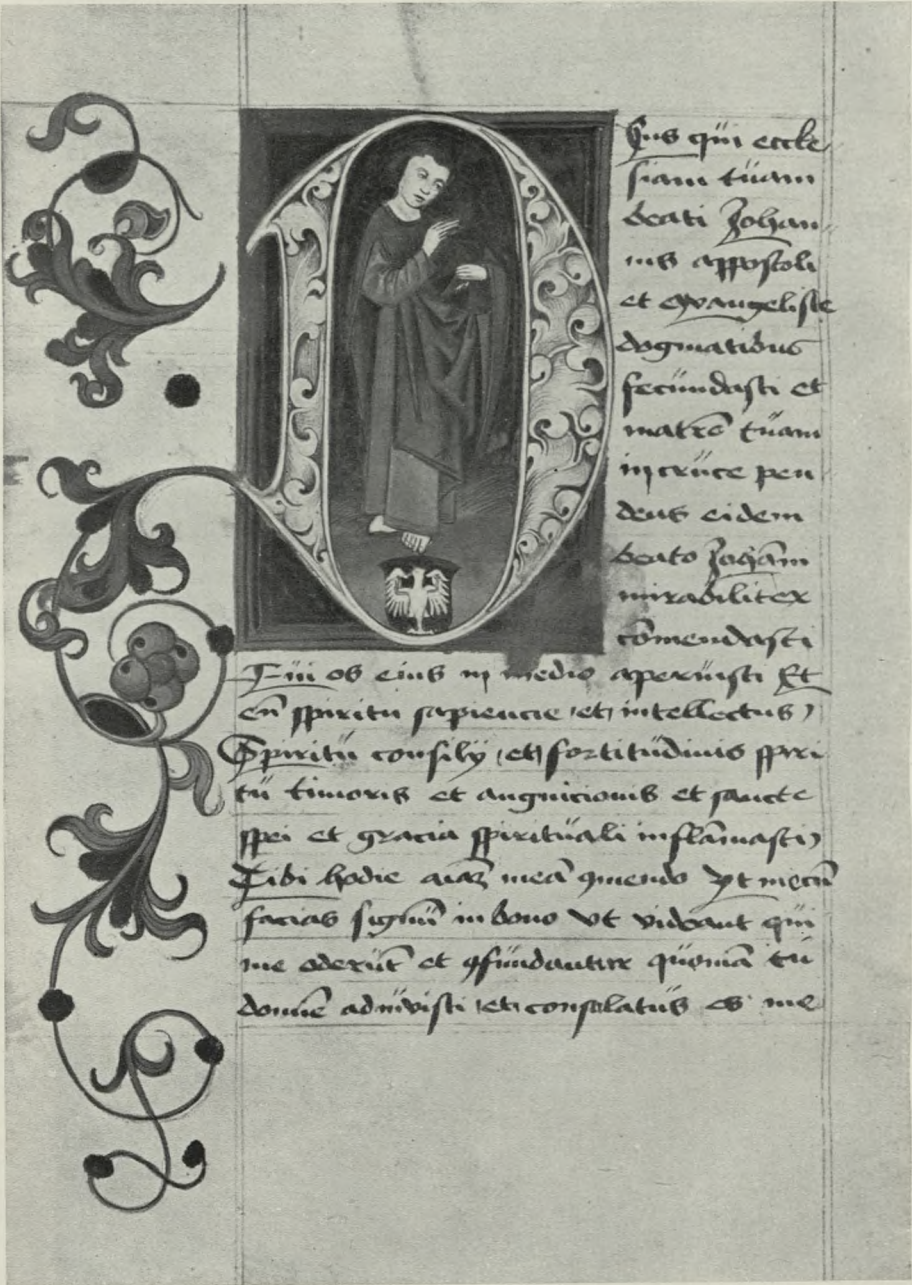 Deus qui eccle
siam tüam
beati Johan
nis appostoli
et ewangeliste
dogmatibus
fecündasti et
matrē tüam
in crüce pen
dens eidem
beato Johāni
mirabiliter
cōmendasti
Tüi os eius in medio aperüisti Et
eū spiritu sapiencie et intellectus
Spiritü consilij et fortitüdinis spiri
tü timoris et et sancte
spei et gracia spiritüali inflāmasti
Tibi hodie meā ꝯmendo Vt mecū
facias signū in bono vt videant qüi
me oderūt et ꝯfündantur qüoniā tü
domīe adiüvisti et consolatüs es me